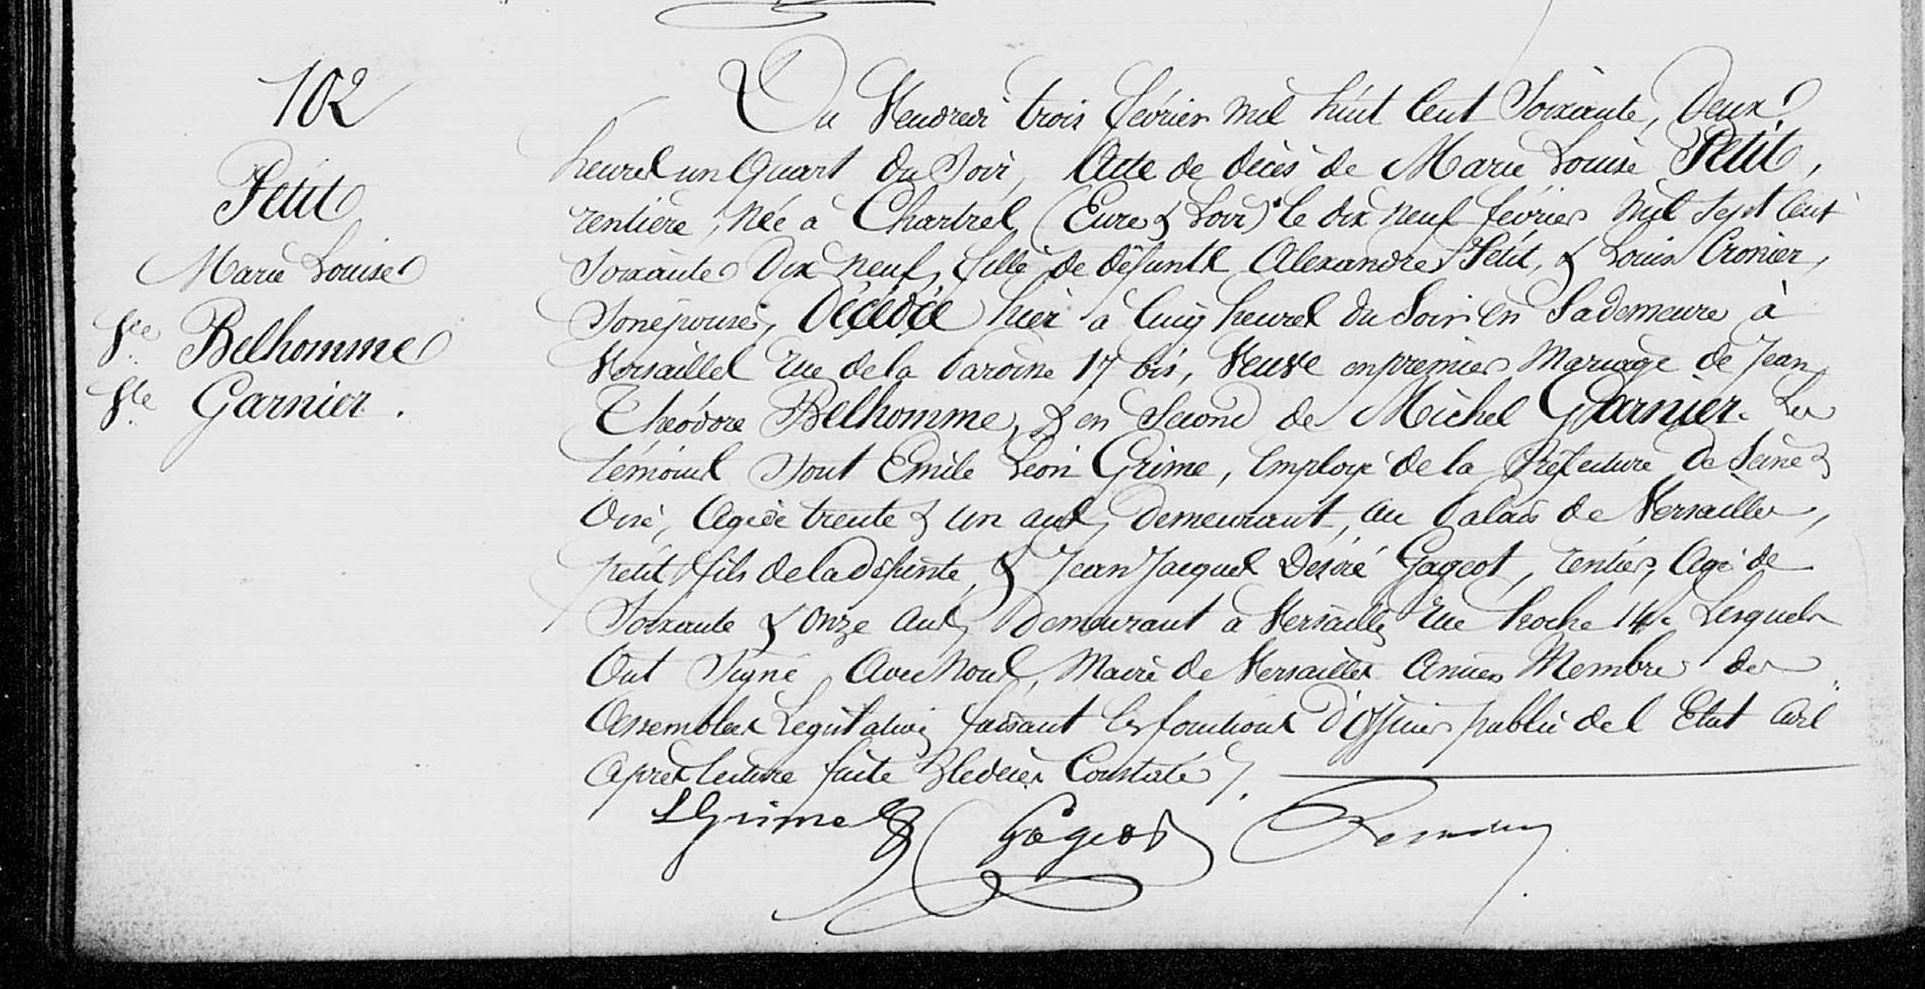 102
Petit
Marie Louise
Vve Belhomme
Vve Garnier.
Du Vendredi trois février mil huit Cent Soixante, Deux
heures un Quart du Soir, Acte de décès de Marie Louise Petit,
rentière, Née à Chartres (Eure & Loir) le dix neuf février mil Sept Cent
Soixante Dix Neuf, fille de défunts Alexandre Petit, & Louise Cronier,
Son épouse, Décédée hier à Cinq heures du Soir en Sa demeure à
Versailles rue de la Paroisse 17 bis, Veuve en premier Mariage de Jean
Théodore Belhomme, & en Second de Michel Garnier. Les
témoins Sont Emile Léon Grime, Employé de la Préfecture De Seine &
Oise, Agé de trente & un ans, Demeurant, au Palais de Versailles,
petit fils de la Défunte, & Jean Jacques Désiré Gageot, rentier, Agé de
Soixante & Onze Ans, Demeurant à Versailles rue hoche 14. Lesquels
Ont Signé Avec Nous, Maire de Versailles Ancien Membre des
Assemblées Législatives faisant les fonctions D'Officier public de l'Etat Civil
Après lecture faite & le décès Constaté
LGrime Gageot